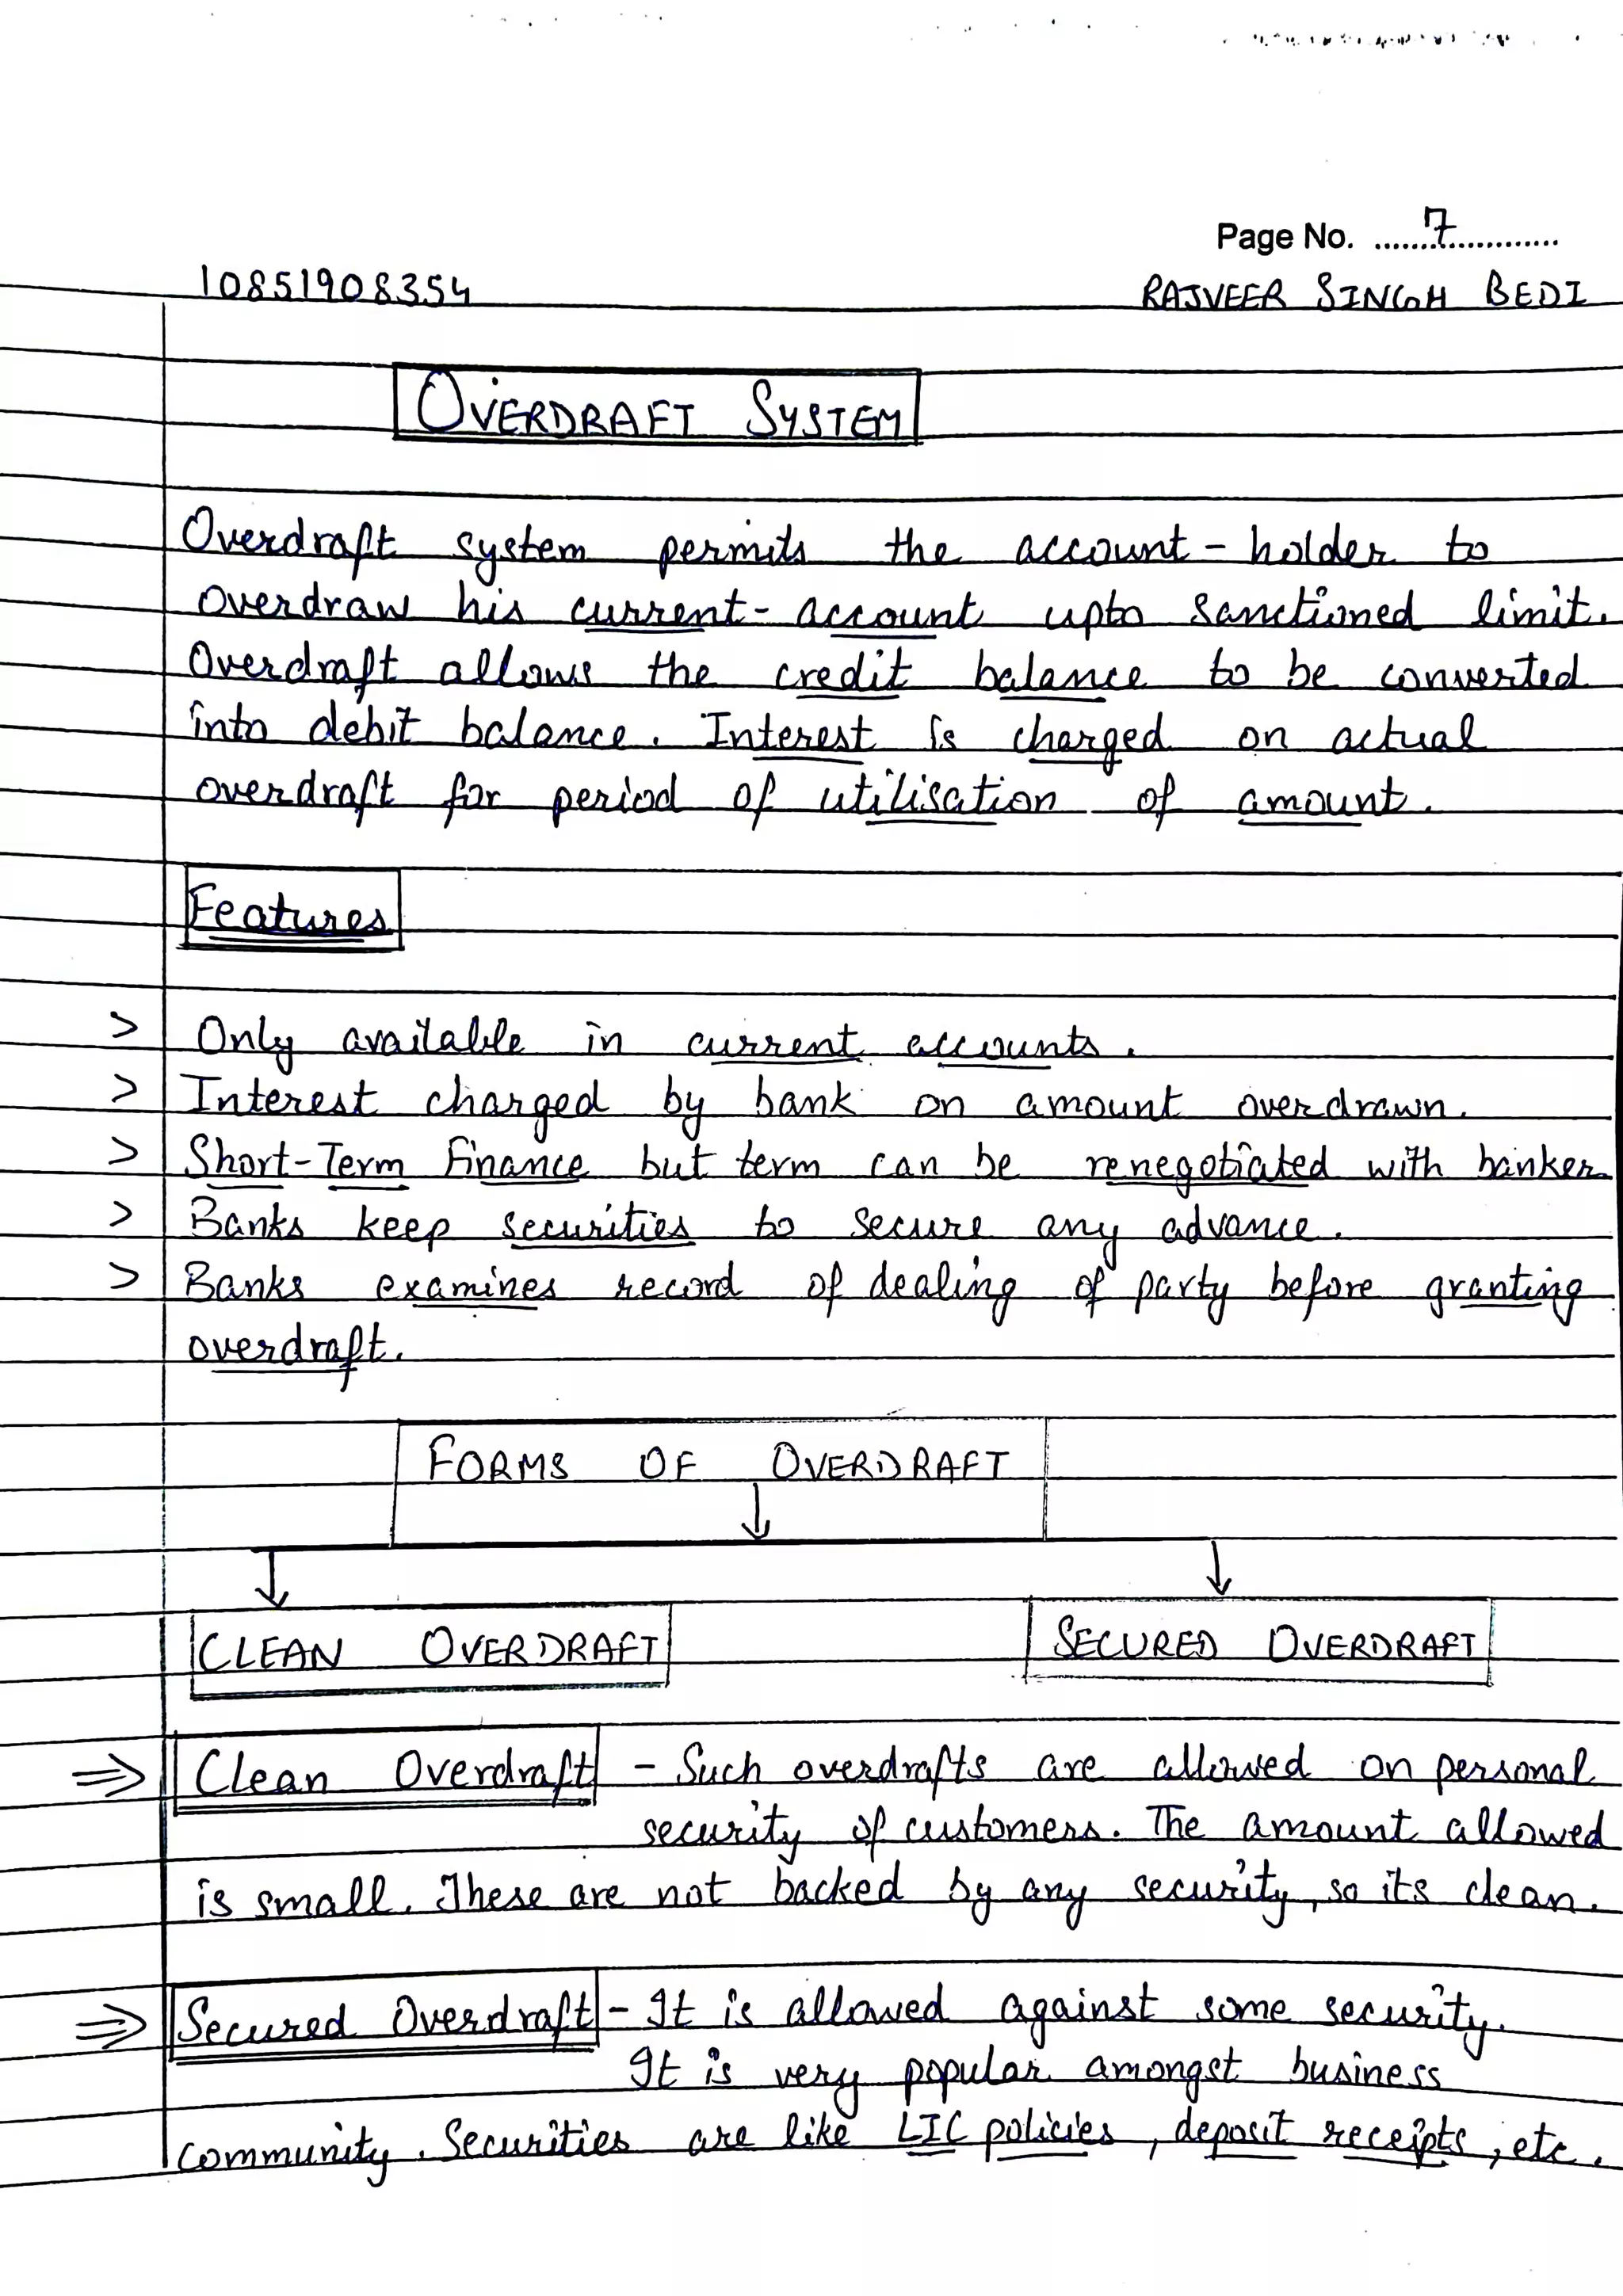 Page No. 7
10851908354
RAJVEER SINGH BEDI
OVERDRAFT SYSTEM
Overdraft system permits the account-holder to
overdraw his current-account upto sanctioned limit.
Overdraft allows the credit balance to be converted
into debit balance. Interest is charged on actual
overdraft for period of utilisation of amount.
Features
> Only available in current accounts.
> Interest charged by bank on amount overdrawn.
> Short-Term Finance but term can be renegotiated with banker
> Banks keep securities to secure any advance.
> Banks examines record of dealing of party before granting
overdraft.
FORMS OF OVERDRAFT
CLEAN OVERDRAFT
SECURED OVERDRAFT
⇒ Clean Overdraft - Such overdrafts are allowed on personal
security of customers. The amount allowed
is small. These are not backed by any security, so its clean.
⇒ Secured Overdraft - It is allowed against some security.
It is very popular amongst business
community. Securities are like LIC policies, deposit receipts, etc.